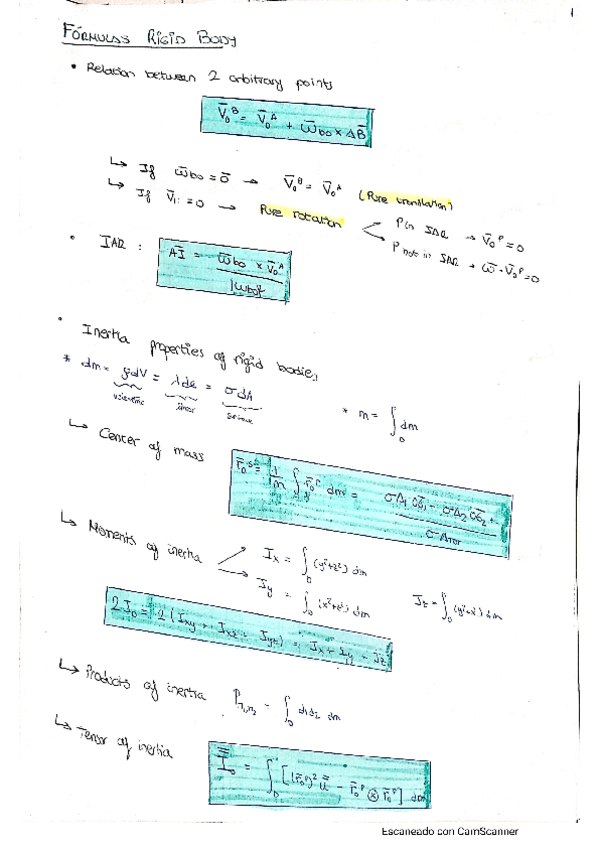 1
FÓRMULAS RIGID BODY
• Relation between 2 arbitrary points
V̄₀ᴮ = V̄₀ᴬ + ω̄b0 × AB̄
↳ If ω̄b0 = 0̄ → V̄₀ᴮ = V̄₀ᴬ (Pure translation)
↳ If V̄i = 0 → Pure rotation
P in IAR → V̄₀ᴾ = 0
P not in IAR → ω̄ · V̄₀ᴾ = 0
• IAR : AĪ = ω̄b0 × V̄₀ᴬ / |ωb0|²
• Inertia properties of rigid bodies:
* dm = ρdV = λdl = σdA
volumetric linear surface
* m = ∫D dm
↳ Center of mass
= 1/m ∫D r̄₀ᴾ dm =
↳ Moments of inertia
Ix = ∫D (y²+z²) dm
Iy = ∫D (x²+z²) dm
Iz = ∫D (y²+x²) dm
2I₀ = 2(Ixy + Ixz + Iyz) = Ix + Iy + Iz
↳ Products of inertia Pπ₁π₂ = ∫D d₁d₂ dm
↳ Tensor of inertia
I₀ = ∫D [(r̄₀ᴾ)² u - r̄₀ᴾ ⊗ r̄₀ᴾ] dm
Escaneado con CamScanner